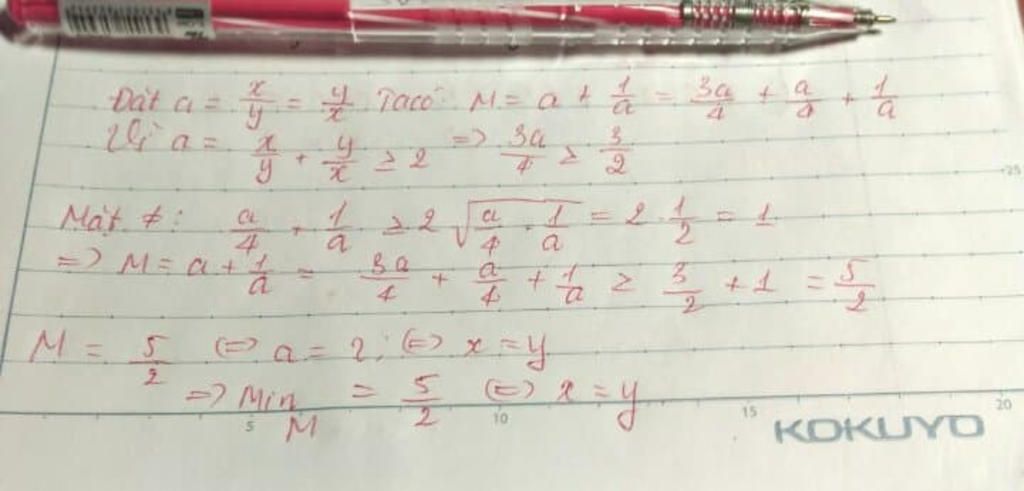 Đặt a = x/y = y/x Ta có: M = a + 1/a = 3a/4 + a/4 + 1/a
Vì a = x/y + y/x ≥ 2 => 3a/4 ≥ 3/2
Mặt ≠: a/4 + 1/a ≥ 2 √(a/4 . 1/a) = 2 . 1/2 = 1
=> M = a + 1/a = 3a/4 + a/4 + 1/a ≥ 3/2 + 1 = 5/2
M = 5/2 <=> a = 2; <=> x = y
=> Min M = 5/2 <=> x = y
5 10 15 20
25
KOKUYO